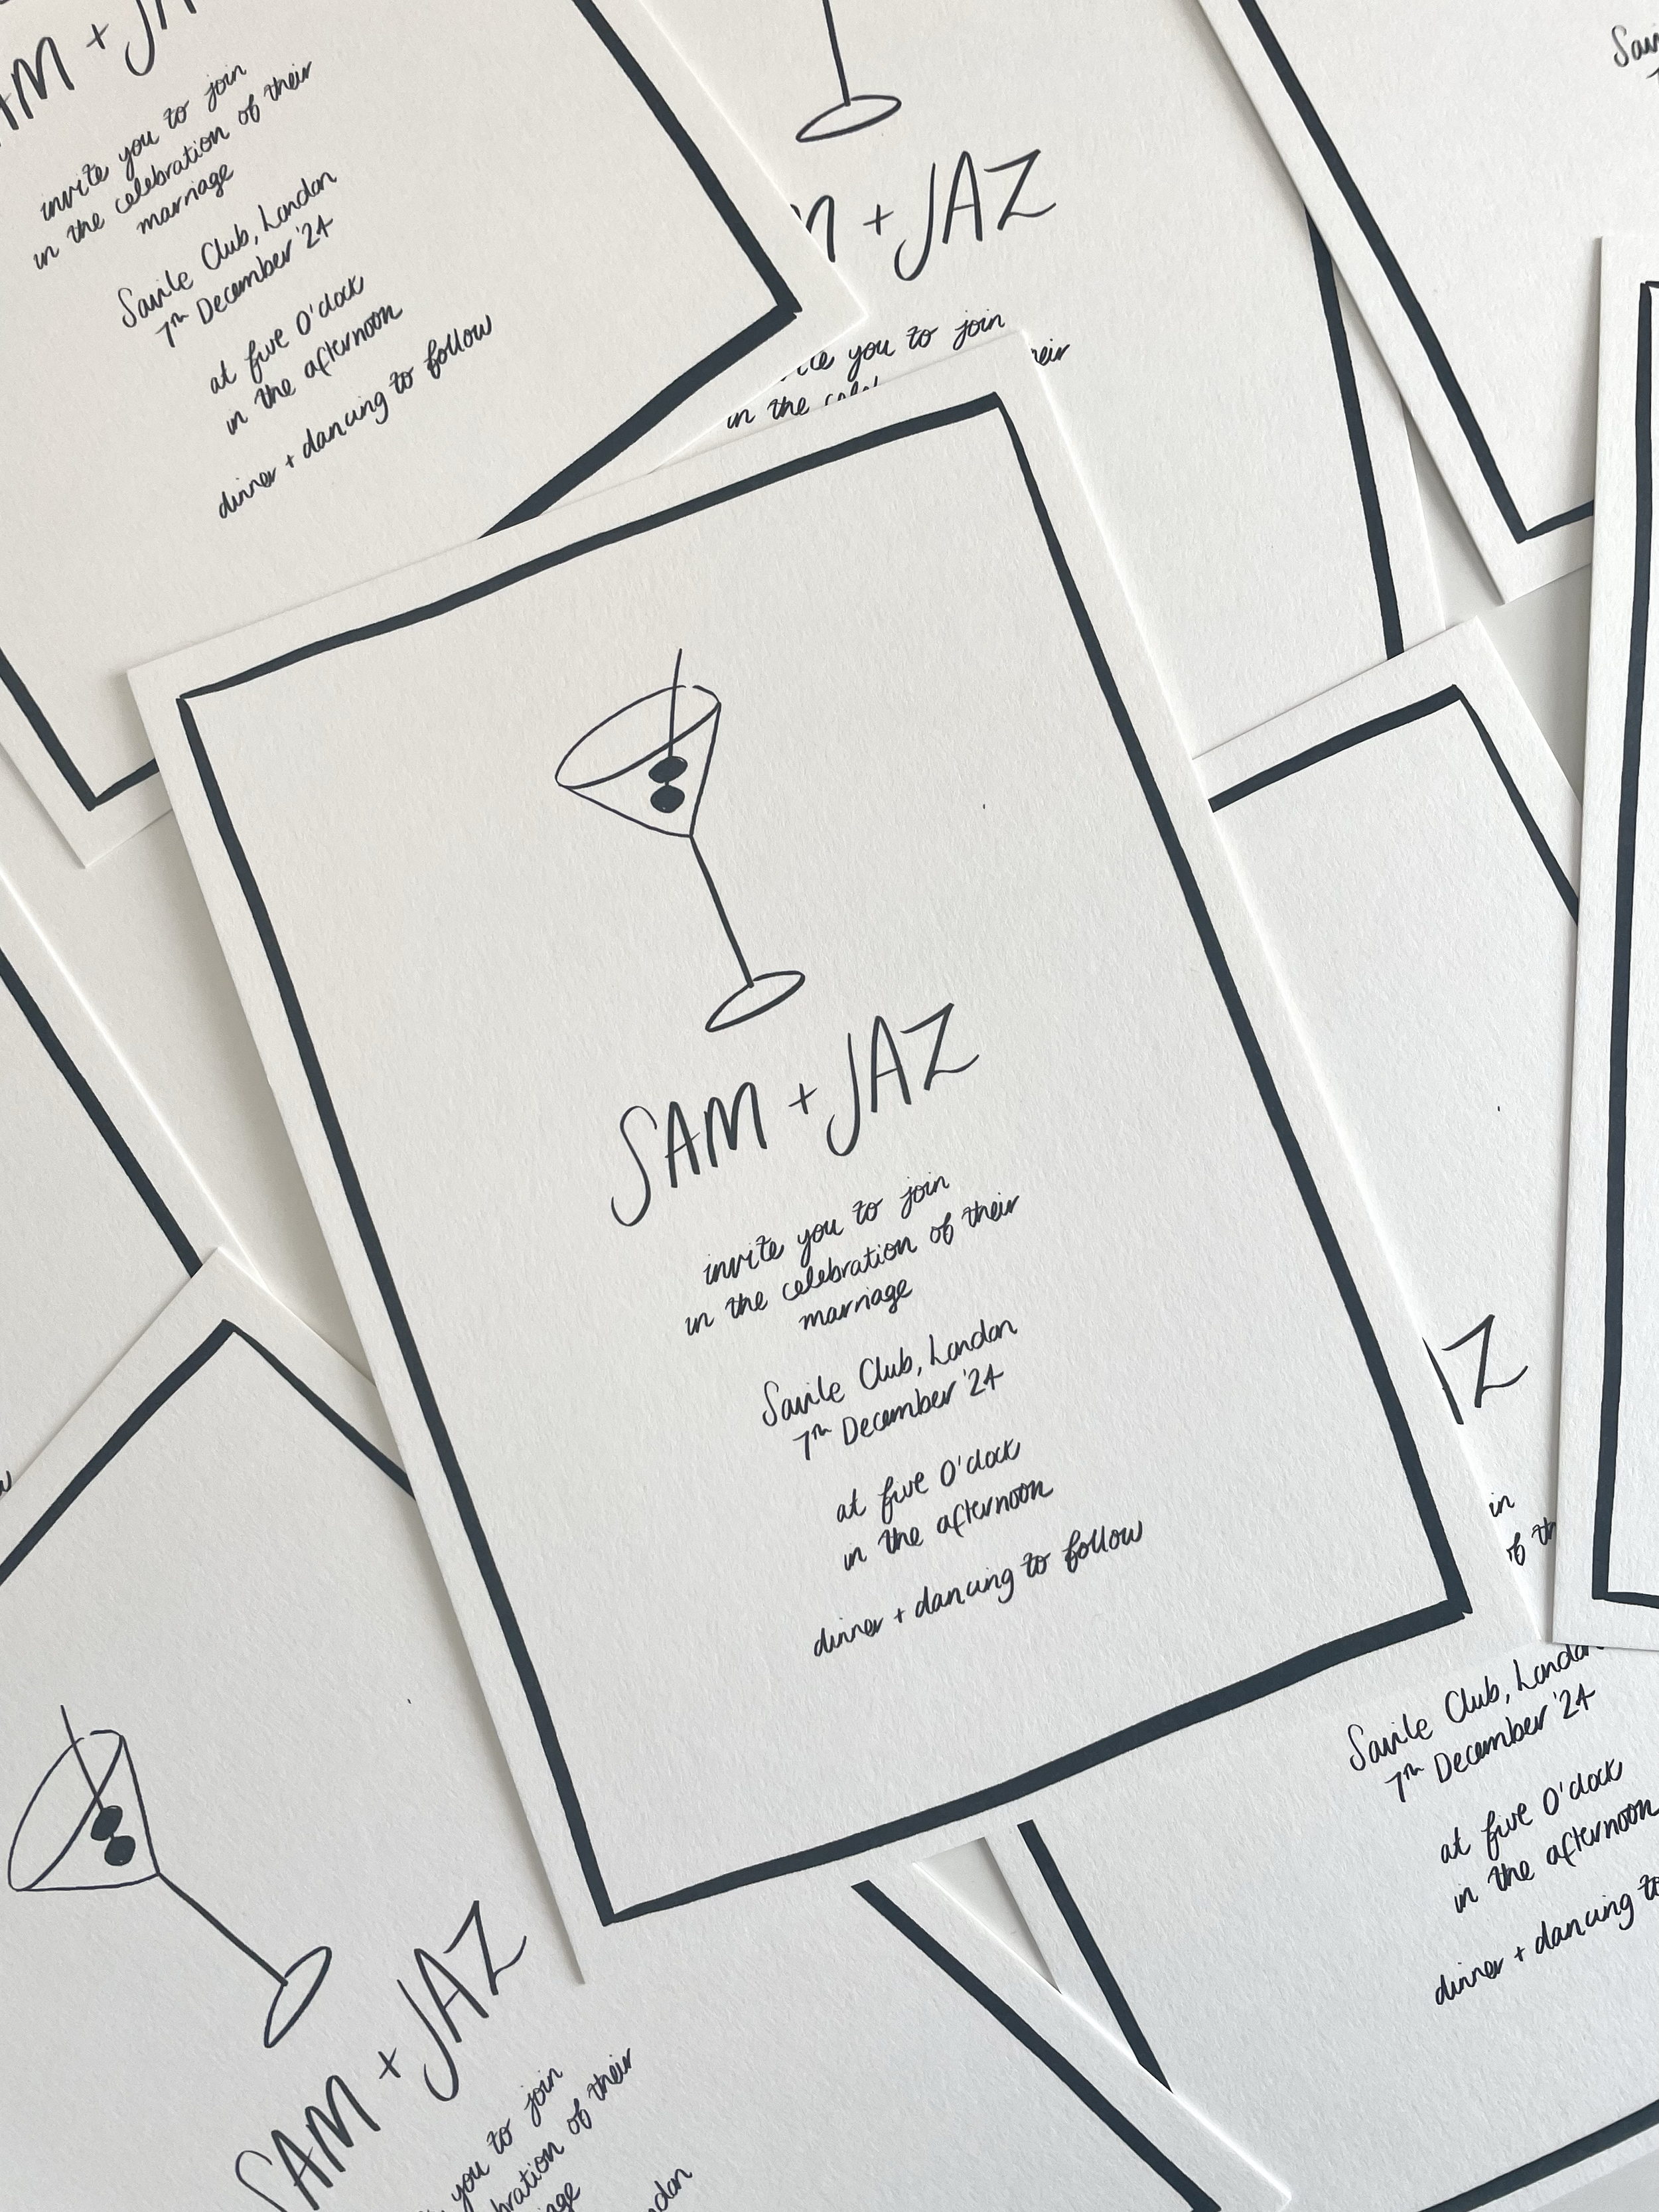 AM + JA
invite you to join
in the celebration of their
marriage
Savile Club, London
7th December '24
at five O'clock
in the afternoon
dinner + dancing to follow
M + JAZ
you to join
their
in the
SAM + JAZ
invite you to join
in the celebration of their
marriage
Savile Club, London
7th December '24
at five O'clock
in the afternoon
dinner + dancing to follow
Z
in
of th
Savile Club, London
7th December '24
at five O'clock
in the afternoon
dinner + dancing to
SAM + JAZ
you to join
bration of their
age
ndon